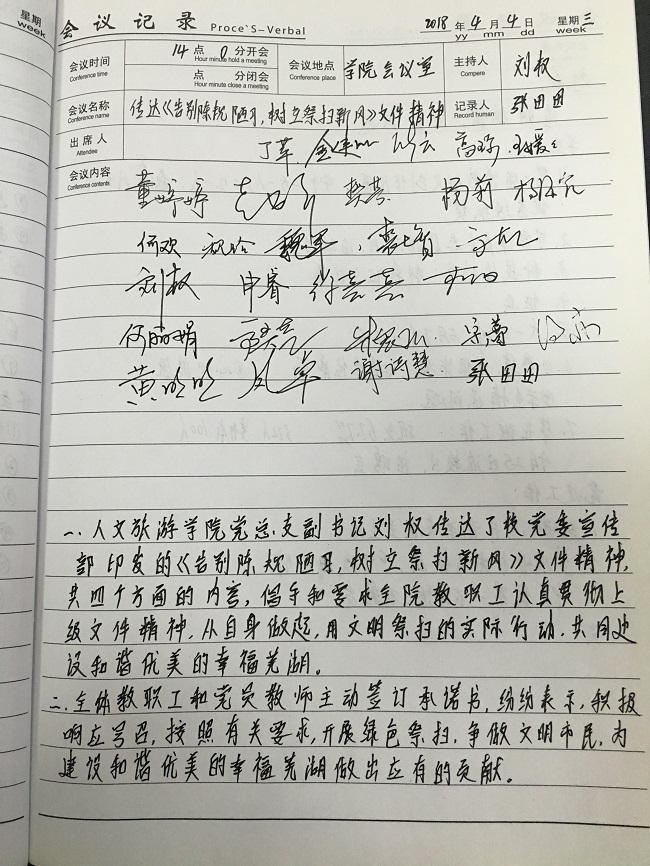 星期
week
会议记录 Proce`S-Verbal 2018年4月4日 星期三
yy mm dd week
会议时间 14点0分开会 会议地点 学院会议室 主持人 刘权
Conference time Hour minute hold a meeting Conference place Compere
点 分闭会
Hour minute close a meeting
会议名称 传达《告别陈规陋习,树立祭扫新风》文件精神 记录人 张田田
Conference name Record human
出席人 丁苹 高琼
Attendee
会议内容
Conference contents
董婷婷 樊芸 杨莉
何欢 魏军
刘权 申睿 徐喜喜
何丽娟 宋蕾
黄明明 凤军 谢诗慧 张田田
一、人文旅游学院党总支副书记刘权传达了校党委宣传
部印发的《告别陈规陋习,树立祭扫新风》文件精神,
共四个方面的内容,倡导和要求全院教职工认真贯彻上
级文件精神,从自身做起,用文明祭扫的实际行动,共同建
设和谐优美的幸福芜湖。
二、全体教职工和党员教师主动签订承诺书,纷纷表示,积极
响应号召,按照有关要求,开展绿色祭扫,争做文明市民,为
建设和谐优美的幸福芜湖做出应有的贡献。